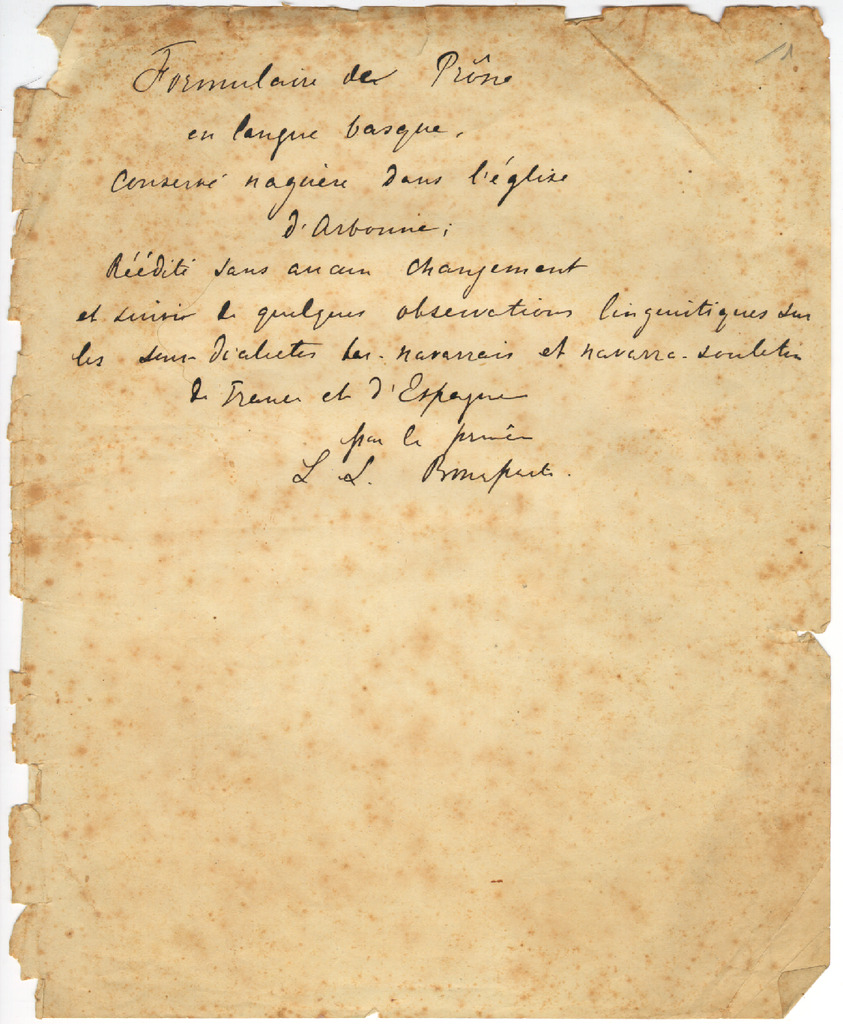 1
Formulaire de Prône
en langue basque,
Conservé naguère dans l'église
d'Arbonne;
Réédité sans aucun changement
et suivi de quelques observations linguistiques sur
les sous-dialectes bas-navarrais et navarro-souletin
de France et d'Espagne
par le prince
L L. Bonaparte.